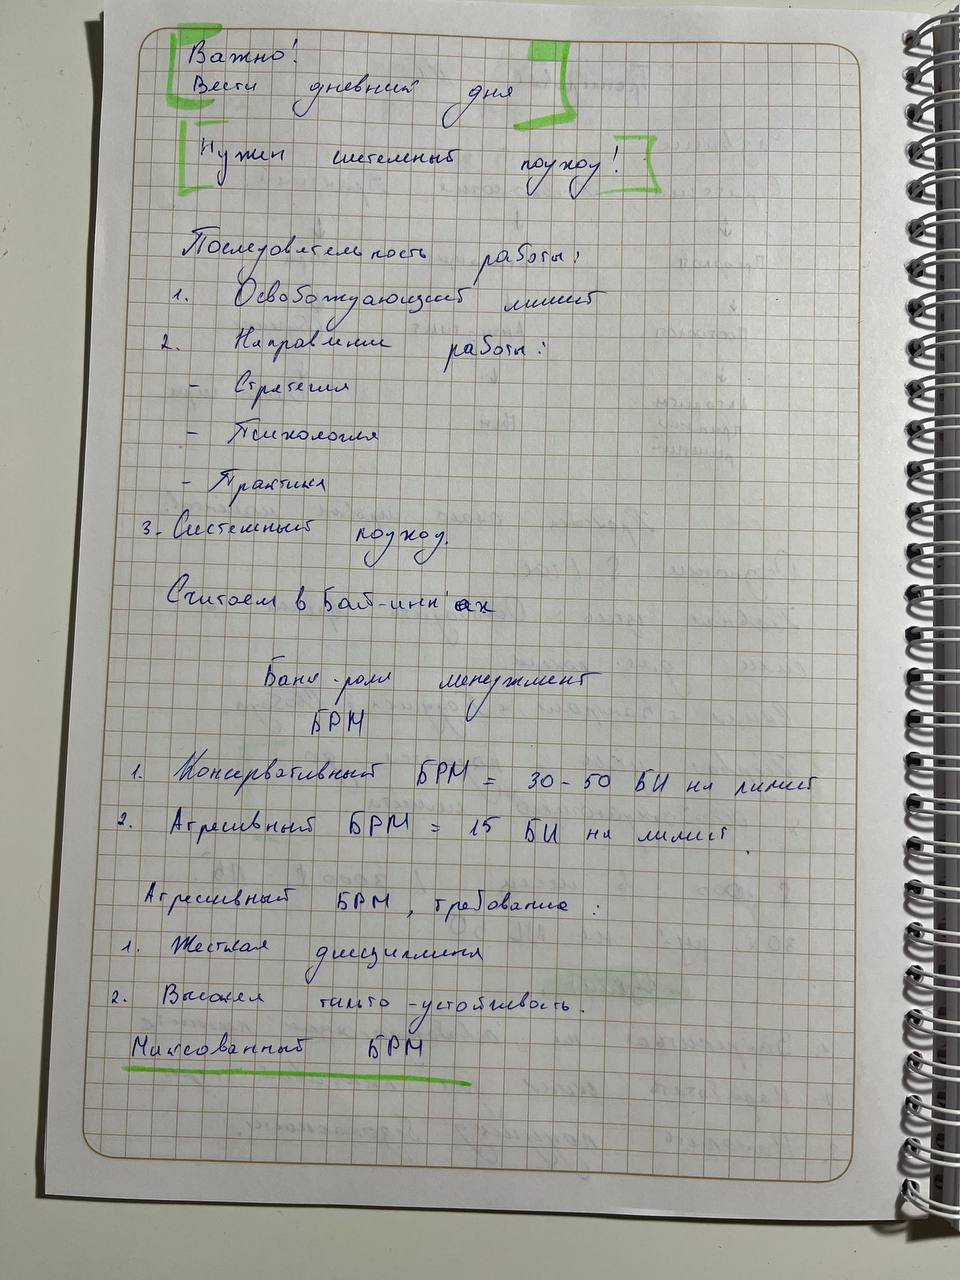 Важно!
Вести дневний дня
Нужен системный подход!
Последовательность работы:
1. Освобождающий лимит
2. Направлении работы:
- Стратегия
- Психология
- Практика
3. Системный подход.
Считаем в Бай-инн'ах
Банк-ролл менеджмент
БРМ
1. Консервативный БРМ = 30-50 БИ на лимит
2. Агресивный БРМ = 15 БИ на лимит.
Агресивный БРМ, требование:
1. Жесткая дисциплина
2. Высокая тильто-устойчивость.
Миксованный БРМ